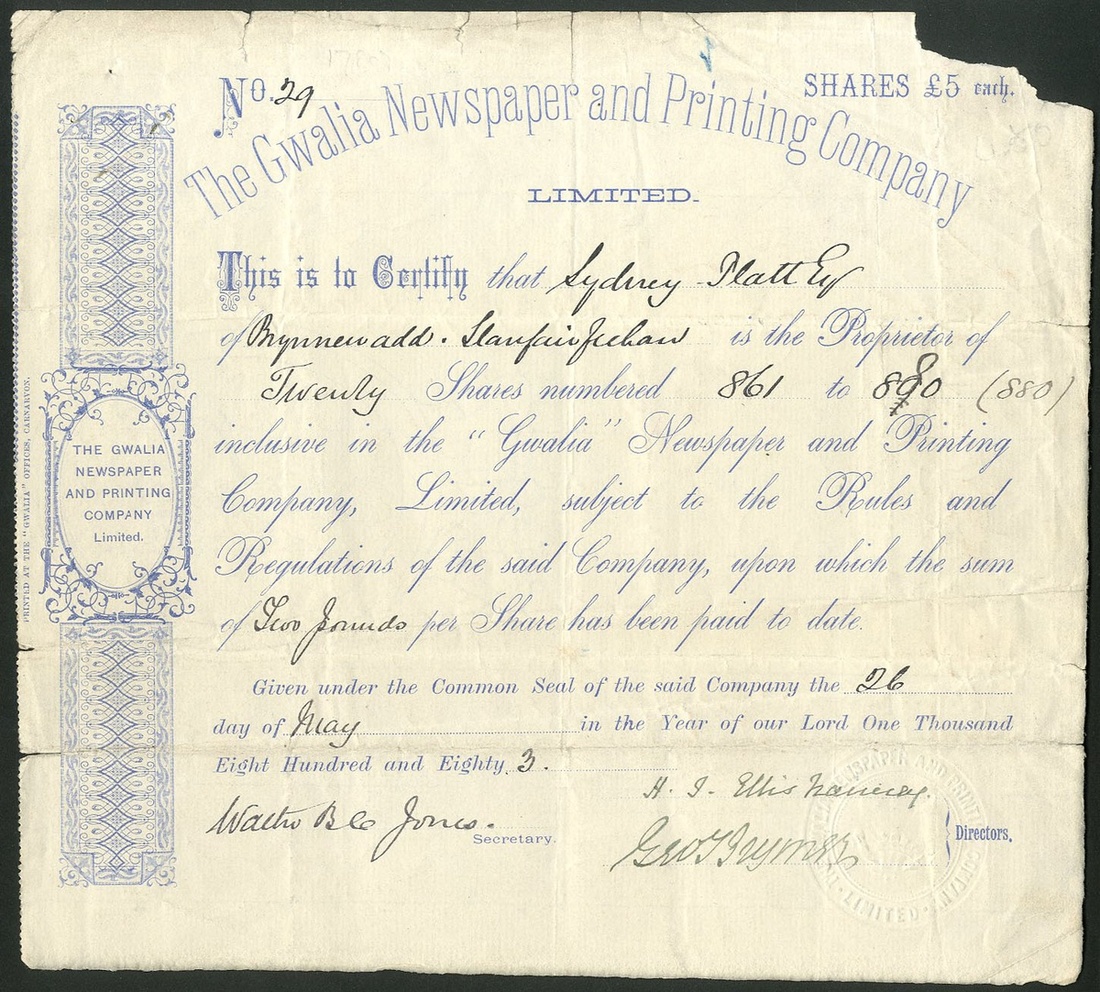 No. 29
SHARES £5 each.
The Gwalia Newspaper and Printing Company
LIMITED.
This is to Certify that Sydney Platt Esq
of Brynnewadd. Llanfairfechan is the Proprietor of
Twenty Shares numbered 861 to 880 (880)
inclusive in the "Gwalia" Newspaper and Printing
Company, Limited, subject to the Rules and
Regulations of the said Company, upon which the sum
of Two Pounds per Share has been paid to date.
Given under the Common Seal of the said Company the 26
day of May in the Year of our Lord One Thousand
Eight Hundred and Eighty 3.
H. J. Ellis Nanney.
Jones.
Secretary.
Directors.
THE GWALIA
NEWSPAPER
AND PRINTING
COMPANY
Limited.
PRINTED AT THE "GWALIA" OFFICES, CARNARVON.
NEWSPAPER AND PRINTING
LIMITED